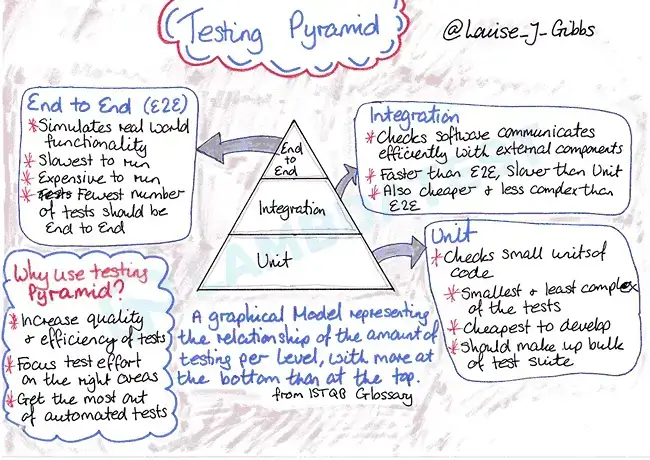 Testing Pyramid
@Louise_J_Gibbs
End to End (E2E)
* Simulates real world
functionality
* Slowest to run
* Expensive to run
* Tests Fewest number
of tests should be
End to End
Integration
* Checks software communicates
efficiently with external components
* Faster than E2E, Slower than Unit
* Also cheaper & less complex than
E2E
End
to
End
Integration
Unit
Unit
* Checks small units of
code
* Smallest & least complex
of the tests
* Cheapest to develop
* Should make up bulk
of test suite
Why use testing
Pyramid?
* Increase quality
& efficiency of tests
* Focus test effort
on the right areas
* Get the most out
of automated tests
A graphical Model representing
the relationship of the amount of
testing per level, with more at
the bottom than at the top.
from ISTQB Glossary